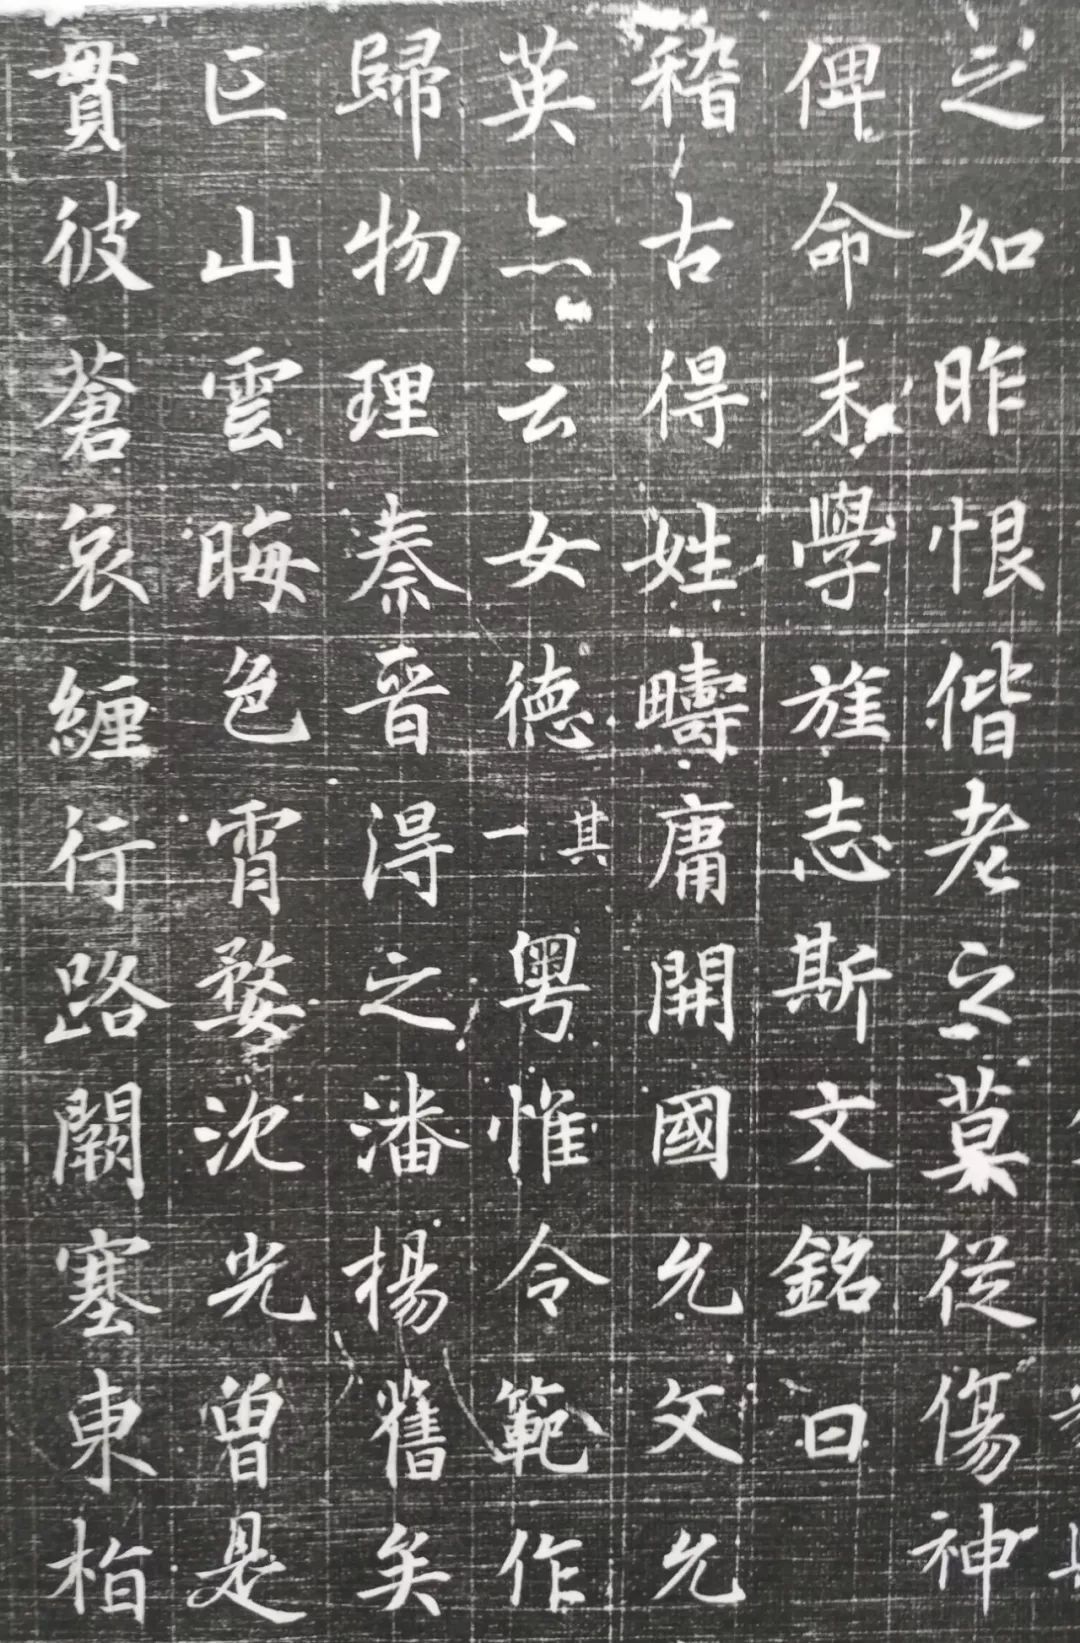 之如昨恨偕老之莫從傷神
俾命末學旌志斯文銘曰
稽古得姓疇庸開國允文允
英亦云女德其一粤惟令範作
歸物理秦晉得之潘楊舊矣
匹山雲晦色宵婺沈光曽是
貫彼蒼哀纏行路闕塞東栢